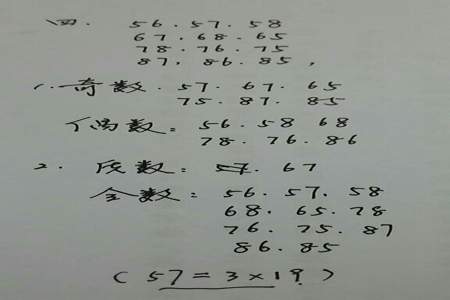 四. 56.57.58
67.68.65
78.76.75
87,86.85,
1.奇数.57.67.65
75.87.85
偶数:56.58 68
78.76.86
2.质数:57.67
合数:56.57.58
68.65.78
76.75.87
86.85
(57=3×19)